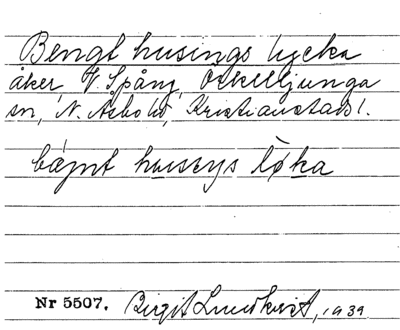 Bengt husings lycka
åker, V. Spång, Örkelljunga
sn, N. Åsbo hd, Kristianstads l.
bájnt husens lø̄ka
Nr 5507. Birgit Lundkvist, 1939